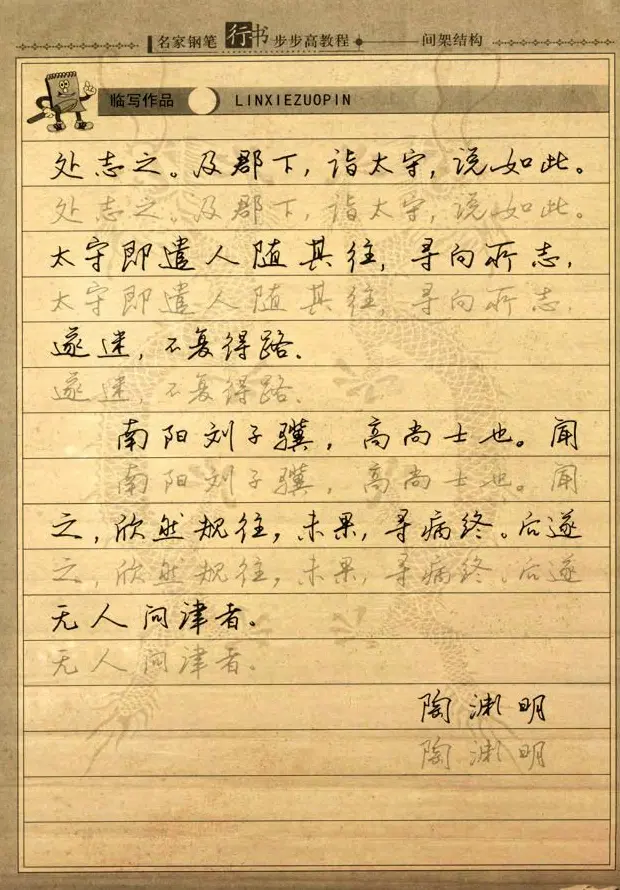 名家钢笔行书步步高教程 间架结构
临写作品 LINXIEZUOPIN
处志之。及郡下，诣太守，说如此。
处志之。及郡下，诣太守，说如此。
太守即遣人随其往，寻向所志，
太守即遣人随其往，寻向所志，
遂迷，不复得路。
遂迷，不复得路。
南阳刘子骥，高尚士也。闻
南阳刘子骥，高尚士也。闻
之，欣然规往，未果，寻病终。后遂
之，欣然规往，未果，寻病终。后遂
无人问津者。
无人问津者。
陶渊明
陶渊明